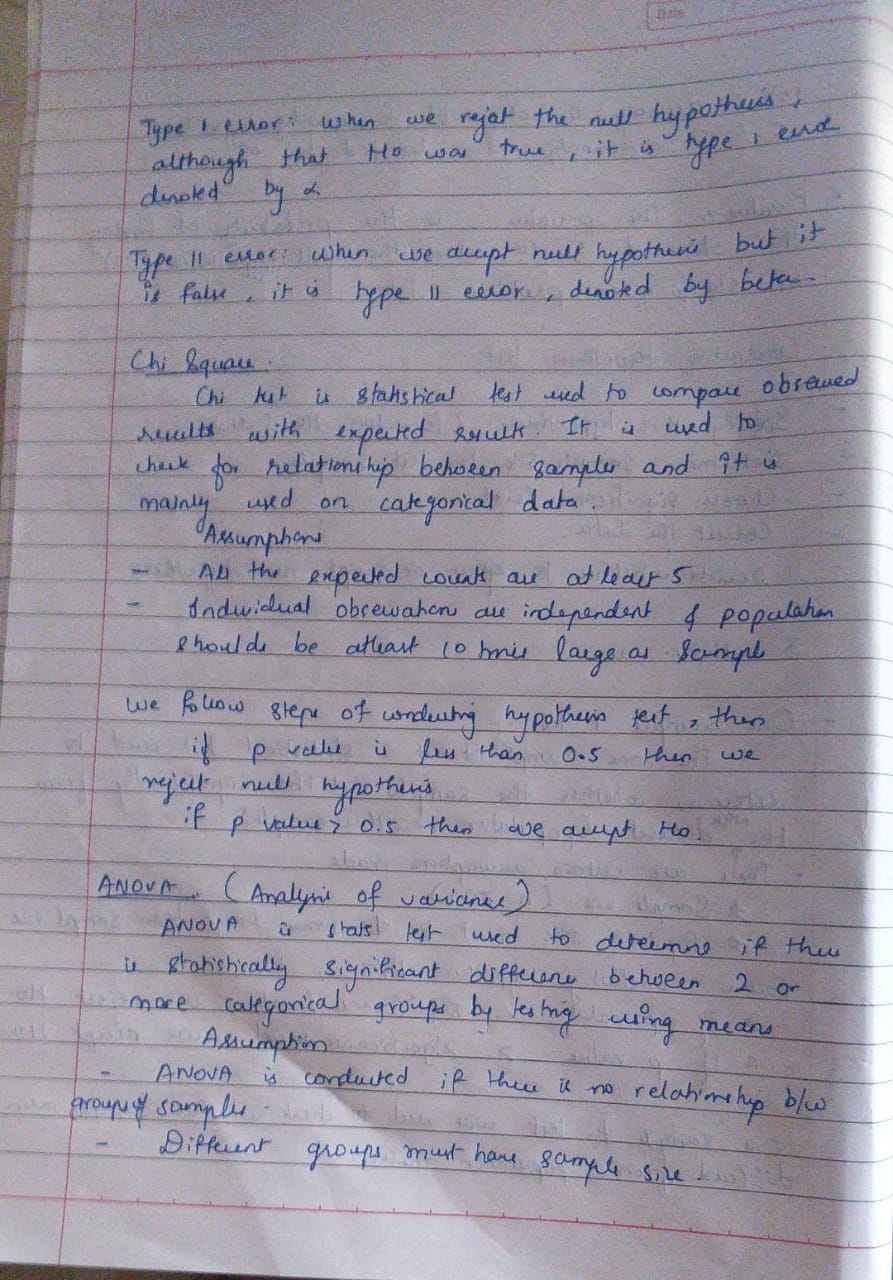 Type 1 error: when we rejat the null hypothesis,
although that Ho was true, it is type 1 error
denoted by α
Type 11 error: when we accept null hypothesis but it
is false, it is type 11 error, denoted by beta
Chi Square.
Chi test is statistical test used to compare observed
results with expected result. It is used to
check for relationship between samples and it is
mainly used on categorical data.
Assumptions
- All the expected counts are at least 5
- Individual observations are independent & population
should be atleast 10 times large as sample
We follow steps of conducting hypothesis test, then
if p value is less than 0.5 then we
reject null hypothesis
if p value > 0.5 then we accept Ho.
ANOVA. (Analysis of variance)
ANOVA is stats test used to determine if there
is statistically significant difference between 2 or
more categorical groups by testing using means
Assumption
- ANOVA is conducted if there is no relationship b/w
groups of sample.
- Different groups must have sample size.